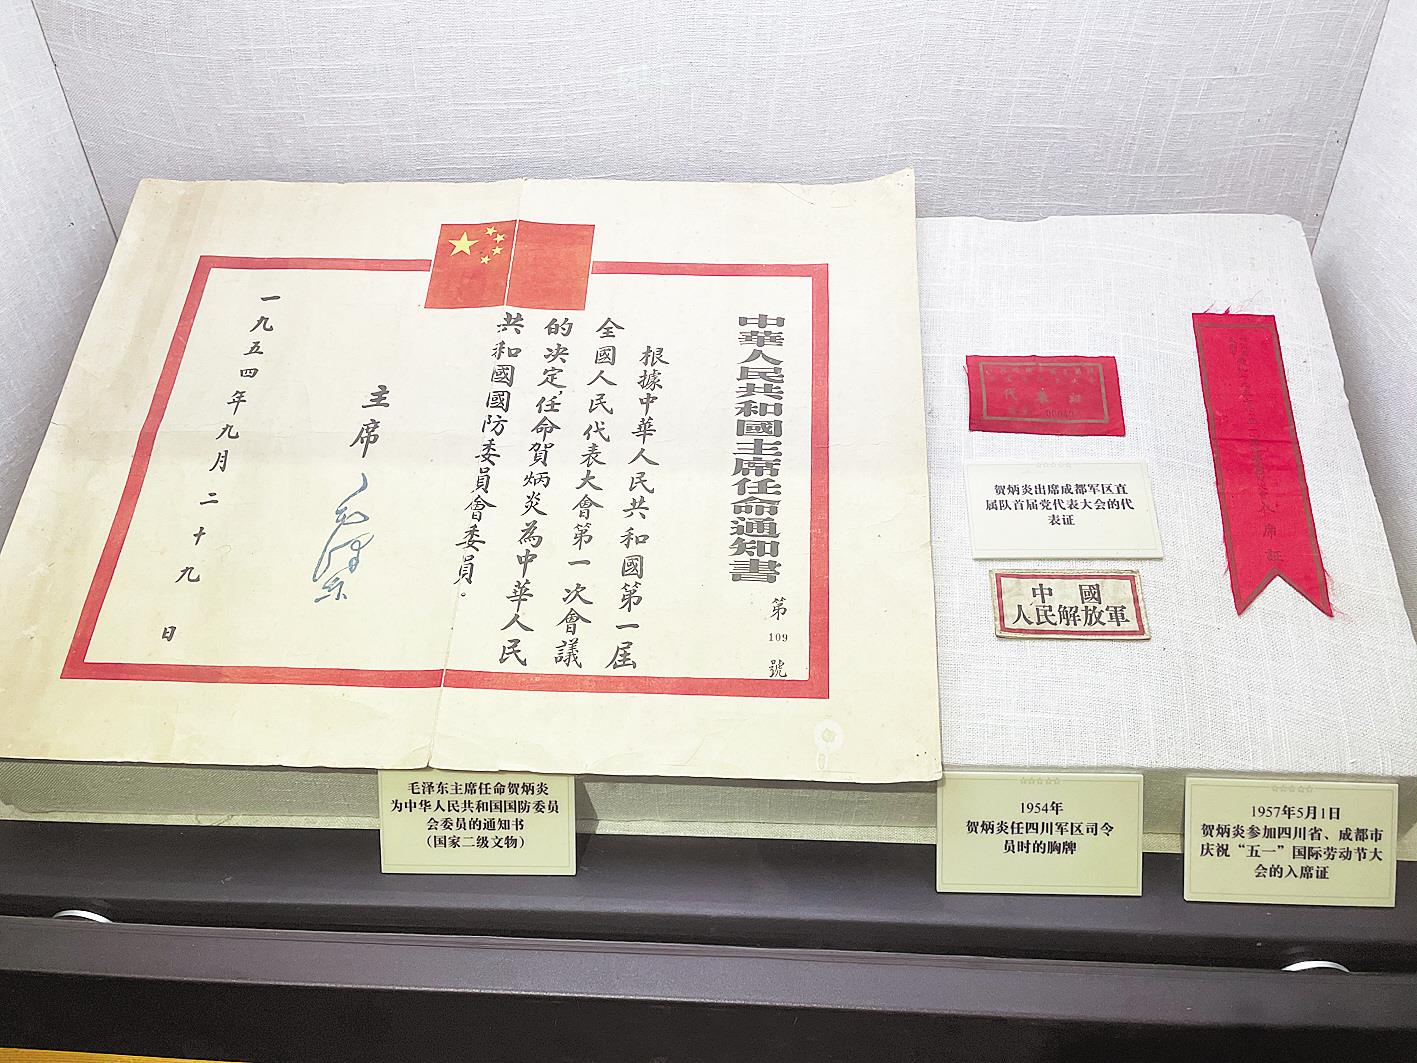 中華人民共和國主席任命通知書
第
109
號
根據中華人民共和國第一屆
全國人民代表大會第一次會議
的決定,任命賀炳炎為中華人民
共和國國防委員會委員。
主席
毛澤东
一九五四年九月二十九日
代表証
00040
贺炳炎出席成都军区直
属队首届党代表大会的代
表证
中國
人民解放軍
席証
毛泽东主席任命贺炳炎
为中华人民共和国国防委员
会委员的通知书
(国家二级文物)
1954年
贺炳炎任四川军区司令
员时的胸牌
1957年5月1日
贺炳炎参加四川省、成都市
庆祝“五一”国际劳动节大
会的入席证